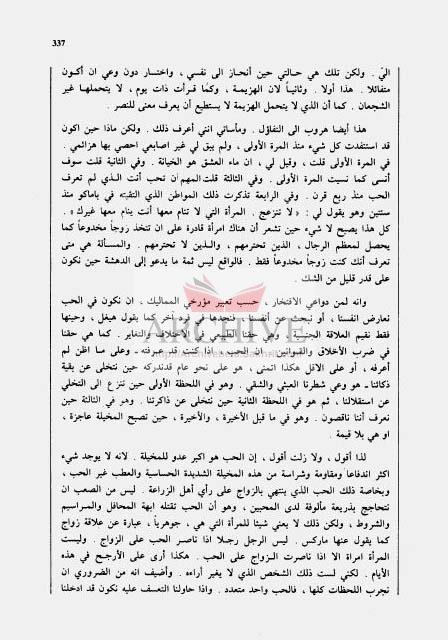 337
اليّ . ولكن تلك هي حالتي حين أنحاز الى نفسي ، واختار دون وعي ان أكون
متفائلا . هذا أولا . وثانيـاً لان الهزيمـة ، وكما قـرأت ذات يوم ، لا يتحملهـا غير
الشجعان . كما أن الذي لا يتحمل الهزيمة لا يستطيع أن يعرف معنى للنصر .
هذا أيضا هروب الى التفاؤل . ومأساتي انني أعرف ذلك . ولكن ماذا حين اكون
قد استنفدت كل شيء منذ المرة الأولى ، ولم يبق لي غير اصابعي احصي بها هزائمي .
في المرة الأولى قلت ، وقيل لي ، ان ماء العشق هو الخيانة . وفي الثانية قلت سوف
أنسى كما نسيت المرة الأولى . وفي الثالثة قلت المهم ان تحب أنت الـذي لم تعرف
الحب منذ ربع قرن . وفي الرابعة تذكرت ذلك المواطن الذي التقيته في باماكو منذ
سنتين وهو يقول لي : « لا تنزعج . المرأة التي لا تنام معها أنت ينام معها غيرك » .
كل هذا يصبح لا شيء حين تشعر أن هناك امرأة قادرة على ان تتخذ زوجاً مخدوعاً كما
يحصل لمعظم الرجال ، الذين تحترمهم ، والـذين لا تحترمهم . والمسـألة هي متى
تعرف أنك كنت زوجاً مخدوعاً فقط . فالواقع ليس ثمة ما يدعو إلى الدهشة حين نكون
على قدر قليل من الشك .
وانه لمن دواعي الافتخار ، حسب تعبير مؤرخي المماليك ، ان نكون في الحب
نعارض انفسنا ، أو نبحث عن أنفسنا ، فنجدها في فرد آخر كما يقول هيغل ، وحينها
فقط نقيم العلاقة الجنسية . وهي حقنا الطبيعي في الاختلاف والتغاير . كما هي حقنا
في ضرب الأخلاق والقـوانين . ان الحب ، اذا كنت قد عـرفته ـ وعلى مـا اظن لم
أعرفه ، أو على الاقل هكذا اتمنى ، هو على نحو عام قد ندركه حين نتخلى عن بقية
ذكائنا ـ هو وعي شطرنا العبثي والشقي . وهو في اللحظة الأولى حين ننزع الى التخلي
عن استقلالنا ، ثم هو في اللحظة الثانية حين نتخلى عن ذاكرتنا . وهو في الثالثة حين
نعرف أننا ناقصون . وهو في ما قبل الأخيرة ، والأخيرة ، حين تصبح المخيلة عاجزة ،
او هي بلا قيمة .
لذا أقول ، ولا زلت أقول ، إن الحب هو اكبر عدو للمخيلة . لانه لا يوجد شيء
اكثر اندفاعاً ومقاومة وشراسة من هذه المخيلة الشديدة الحساسية والعطب غير الحب ،
وبخاصة ذلك الحب الذي ينتهي بالزواج على رأي أهل الزراعة . ليس من الصعب ان
نتحاجج بذريعة مألوفة لدى المحبين ، وهو أن الحب تقتله ابهة المحافل والمـراسيم
والشروط ، ولكن ذلك لا يعني شيئا للمرأة التي هي ، جوهرياً ، عبارة عن علاقة زواج
كما يقول عنها ماركس . ليس الرجل رجـلا اذا ناصـر الحب على الزواج . وليست
المرأة امراة الا اذا ناصرت الـزواج على الحب . هكذا أرى على الأرجـح في هذه
الأيام . لكني لست ذلك الشخص الذي لا يغير أراءه . وأضيف انه من الضروري ان
نجرب اللحظات كلها ، فالحب واحد متعدد . واذا حاولنا التعسف عليه نكون قد ادخلنا
ARCHIVE